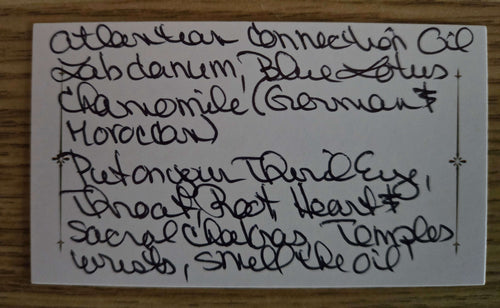 Atlantean Connection Oil
Labdanum, Blue Lotus
Chamomile (German &
Moroccan)
Put on your Third Eye,
Throat, Root Heart &
Sacral Chakras, Temples
wrists, smell the oil